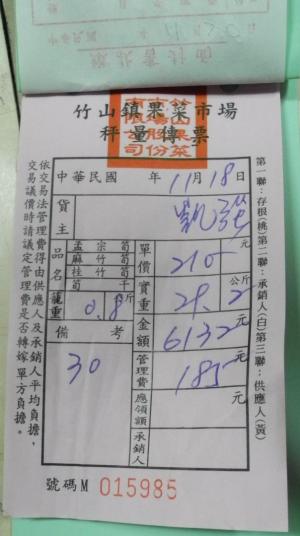 竹山鎮果菜市場
秤量傳票
中華民國 年 11 月 18 日
貨主
品名 孟宗筍 麻竹筍 桂竹筍 筍干
單價 210 元
籠重 0.8 公斤
實重 29.2 公斤
備考 30
金額 6132 元
管理費 185 元
應領額 元
承銷人
號碼M 015985
第一聯:存根(桃)第二聯:承銷人(白)第三聯:供應人(黃)
依交易法管理費得由供應人及承銷人平均負擔,
交易議價時請議定管理費是否轉嫁單方負擔。